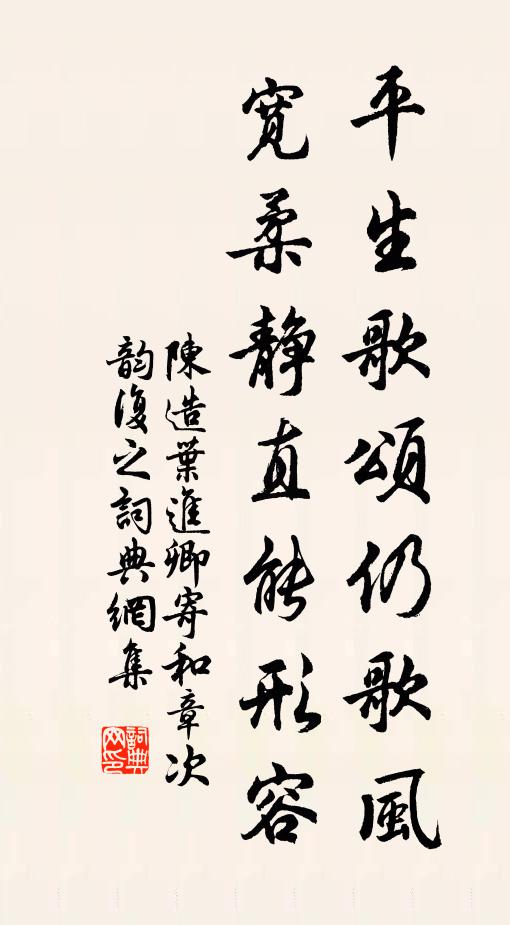 平生歌頌仍歌風
寬柔靜直能形容
陳造葉進卿寄和章次
韵復之詞典網集
詞典
网印